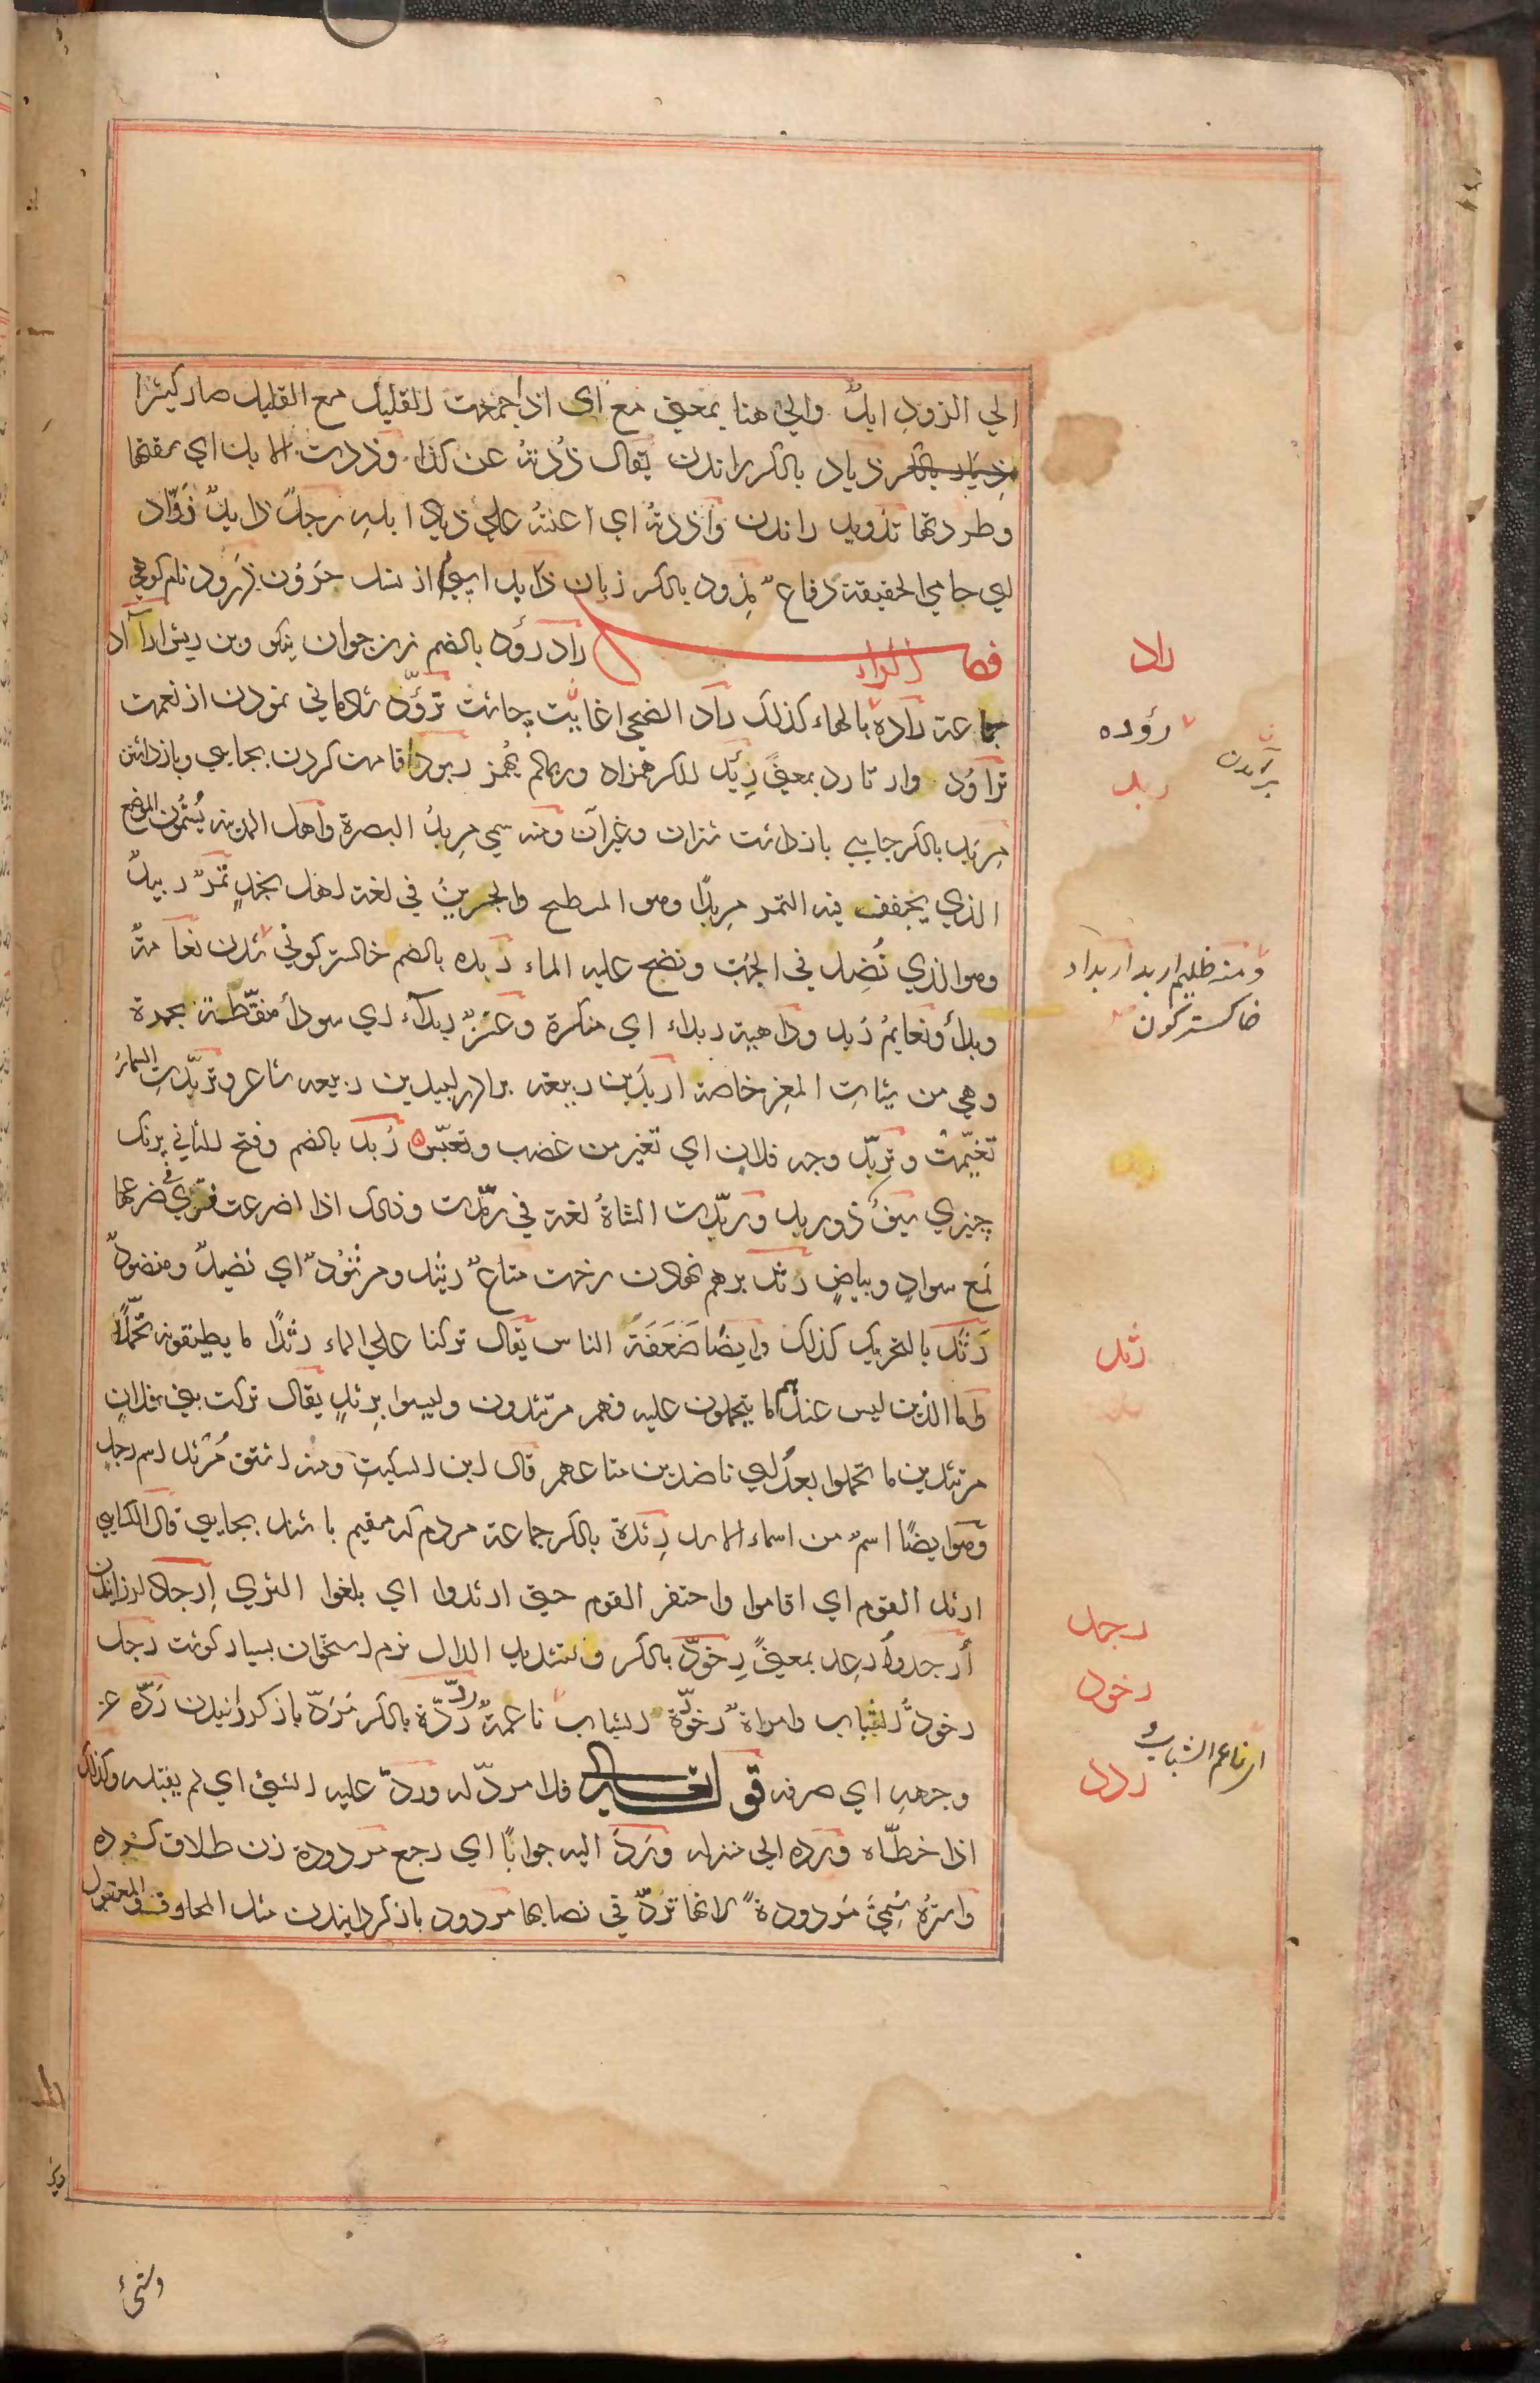 الي الزود ابلٌ والي هنا بمعني مع اي اذا جمعت القليل مع القليل صار كثيرا
ذياد بالكسر راندن يقال ذُدْتُه عن كذا وذدت الابل اي سقتها
وطردتها تذويد راندن واذدته اي اعنته علي ذياد ابله رجلٌ ذايدٌ ذوّاد
اي حامي الحقيقة دفاعٌ مذود بالكسر زبان ذايد اسپي از نسل حَرُون ذَرود نام كوهي
فصل الراء راد رؤد بالضم زن جوان نيكو وبن ريش ارآد
جماعة رادة بالهاء كذلك راد الضحي اغايت چاشت ترؤّد شادماني نمودن از نعمت
تراؤد وارتارد بمعنيً رِئد بالكسر همزاد وربما لم يهمز ربود اقامت كردن بجايي وبازداشتن
مِربَد بالكسر جاي بازداشت شتران وغيرآن ومنه سمي مِربدُ البصرة واهل المدينه يُسمون الموضع
الذي يجفف فيه التمر مِربدًا وهو المسطح والجرينُ في لغة اهل نجدٍ تمرٌ ربيدٌ
وهو الذي نُضِد في الجرب ونضح عليه الماء ربده بالضم خاكستر كوني شدن نعامةٌ
وبدأ ونعايمُ رُبد وداهية ربداء اي منكرة وعنزٌ ربداء اي سودأ منقّطة بحمرة
وهي من شيات المعز خاصة اربد بن ربيعه برادر لبيد بن ربيعه شاعر وتربّدت السماءُ
تغيّمت وتربّد وجه فلان اي تغير من غضب وتعبّس رُبد بالضم وفتح الثاني پرنک
چيزي سيفٌ ذو ربد وربّدت الشاةُ لغة في رمّدت وذلك اذا اضرعت فتري في ضرعها
لمع سوادٍ وبياضٍ رثد برهم نهادن رخت متاعٌ رثيد ومرثودٌ اي نضيدٌ ومنضودٌ
رَثَد بالتحريك كذلك وايضًا ضَعَفَةُ الناس يقال تركنا علي الماء رثدًا ما يطيقون تحمّلًا
واما الذين ليس عندهم ما يتحملون عليه فهم مرتثدون وليسوا برثدٍ يقال تركت بني فلان
مرتثدين ما تحملوا بعدُ اي ناضدين متاعهم قال ابن السكيت ومنه اشتق مَرثد اسم رجلٍ
وهو ايضًا اسمٌ من اسماء الاسد رِثدة بالكسر جماعة مردم كه مقيم باشند بجايي قال الكسايي
ارثد القوم اي اقاموا واحتفر القوم حتي ارثدوا اي بلغوا الثري اِرجاد لرزانيدن
أُرجد وأُرعد بمعنيً رِخوَدّ بالكسر وتشديد الدال نرم استخوان بسيار كوشت رجل
رخودُّ الشباب وامراةٌ رخودّة الشباب ناعمةٌ ردّ رِدّة بالكسر مَرَدّ باز كردانيدن رَدّه عن
وجهه اي صرفه قوله تعالي فلا مردّ له وردّ عليه الشئ اي لم يقبله وكذلك
اذا خطّاه ورده الي منزله ورَدّ اليه جوابًا اي رجع مردودة زن طلاق
مردودةً لانها تُرَدّ في نصابها مردود باز كردانيدن مثل المحلوف والمعقول
راد
رؤده
برآمدن
ربد
ومنه ظليم اربد اربداد
خاكستركون
رثد
رجد
رخود
اي ناعم الشباب
ردد
وشئ